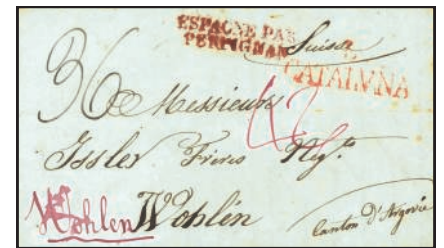 ESPAGNE PAR
PERPIGNAN
Suisse
CATALUÑA
36
Messieurs
42
Issler Frères Negts
Wohlen Wohlen
Canton d'Argovie